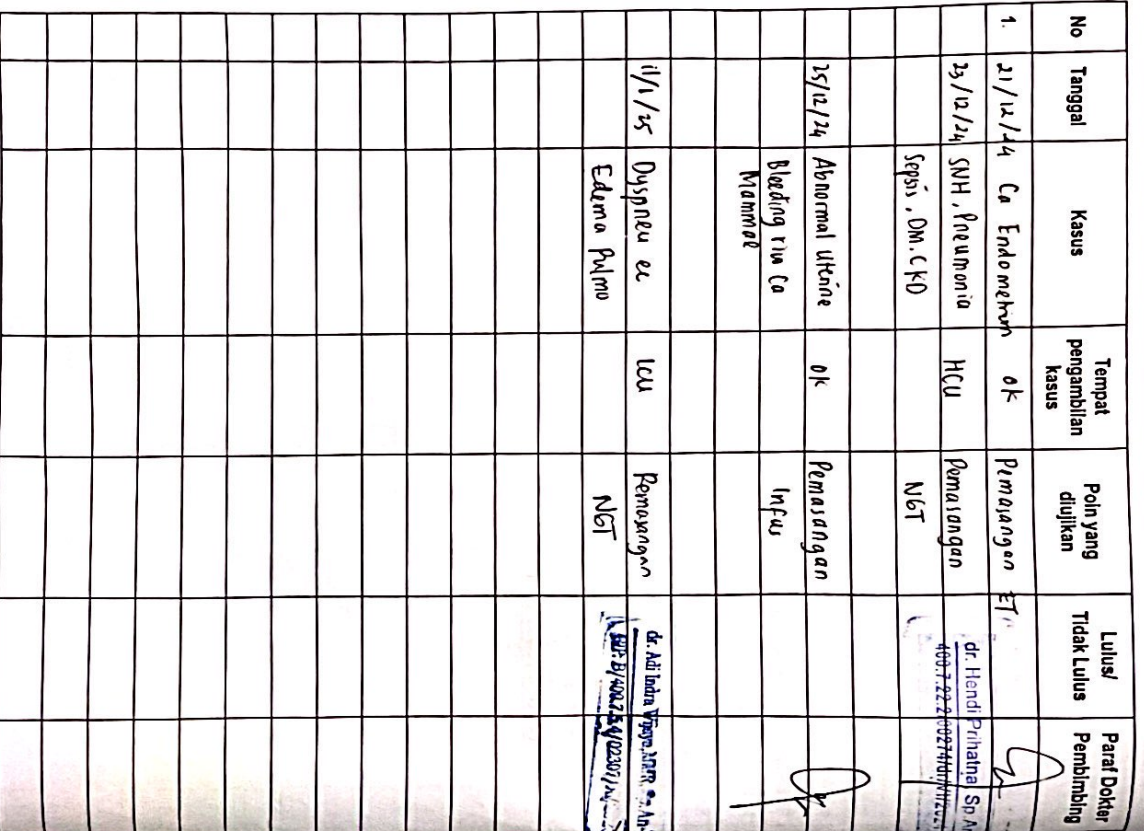 No Tanggal Kasus Tempat pengambilan kasus Poin yang diujikan Lulus/ Tidak Lulus Paraf Dokter Pembimbing
1. 21/12/24 Ca Endometrium ok Pemasangan ET
23/12/24 SNH, Pneumonia HCU Pemasangan
dr. Hendi Prihatna Sp An
Sepsis, DM. CKD NGT
25/12/24 Abnormal Uterine ok Pemasangan
Bleeding riw Ca Infus
Mammae
11/1/25 Dyspneu ec ICU Pemasangan
dr. Adi Indra Wijaya
Edema Pulmo NGT